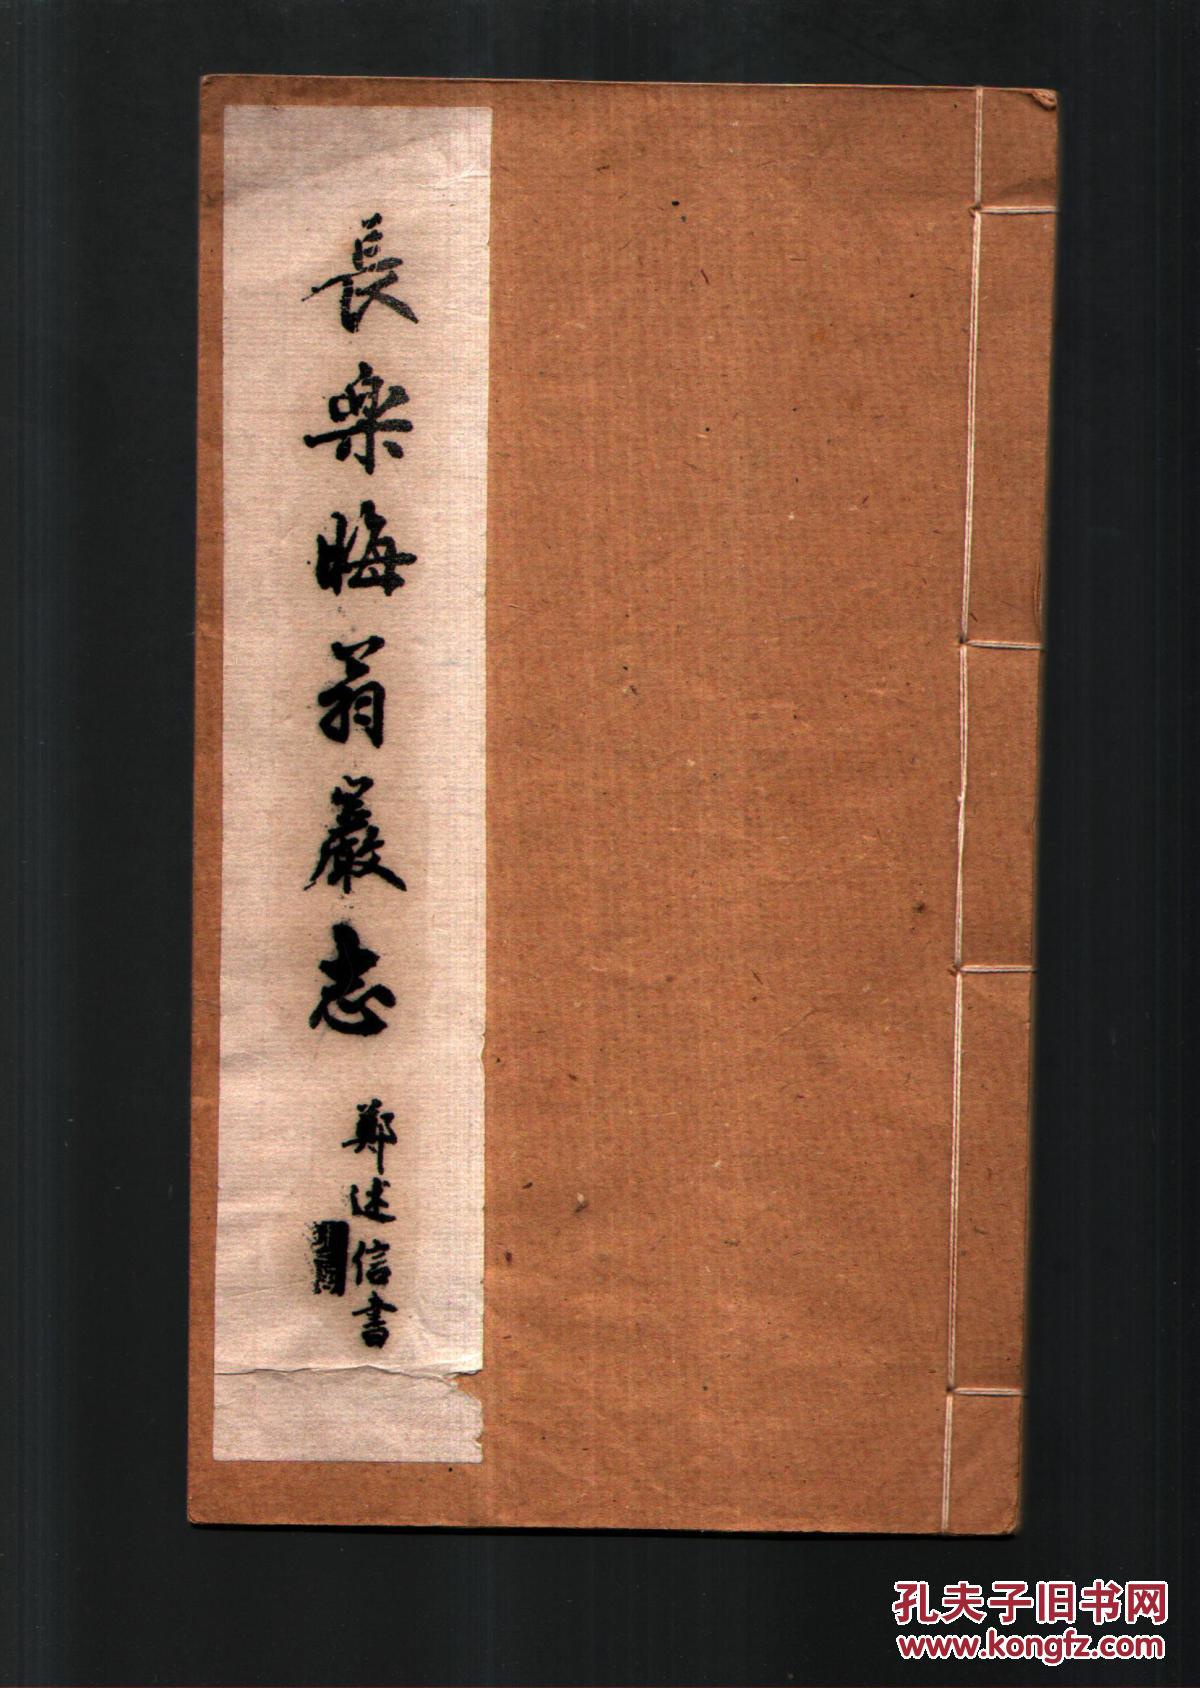 長樂晦翁巖志
鄭述信書
孔夫子旧书网
www.kongfz.com